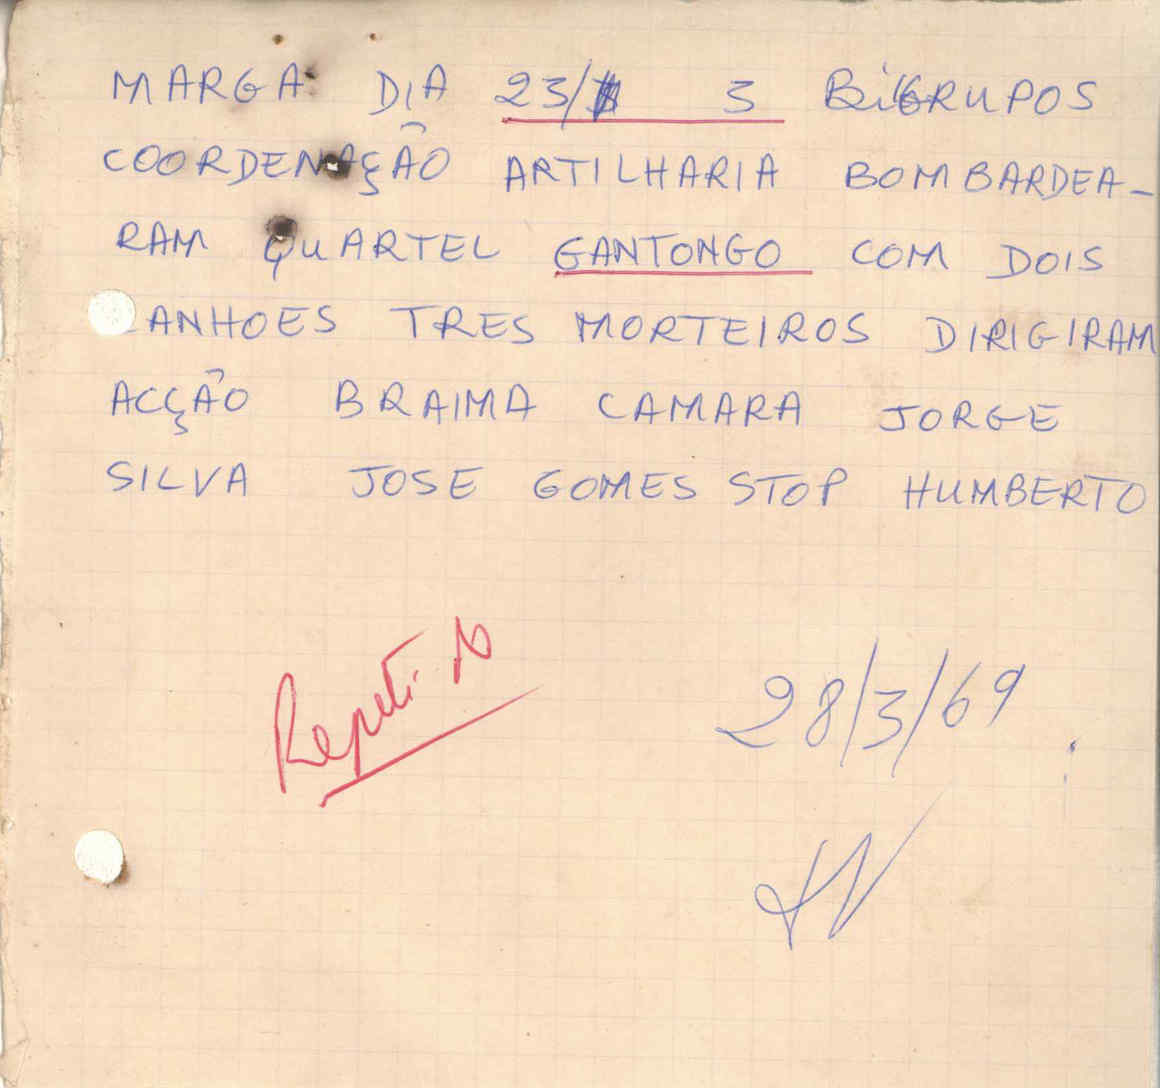 MARGA DIA 23/ 3 BIGRUPOS
COORDENAÇÃO ARTILHARIA BOMBARDEA-
RAM QUARTEL GANTONGO COM DOIS
ANHOES TRES MORTEIROS DIRIGIRAM
ACÇÃO BRAIMA CAMARA JORGE
SILVA JOSE GOMES STOP HUMBERTO
28/3/69